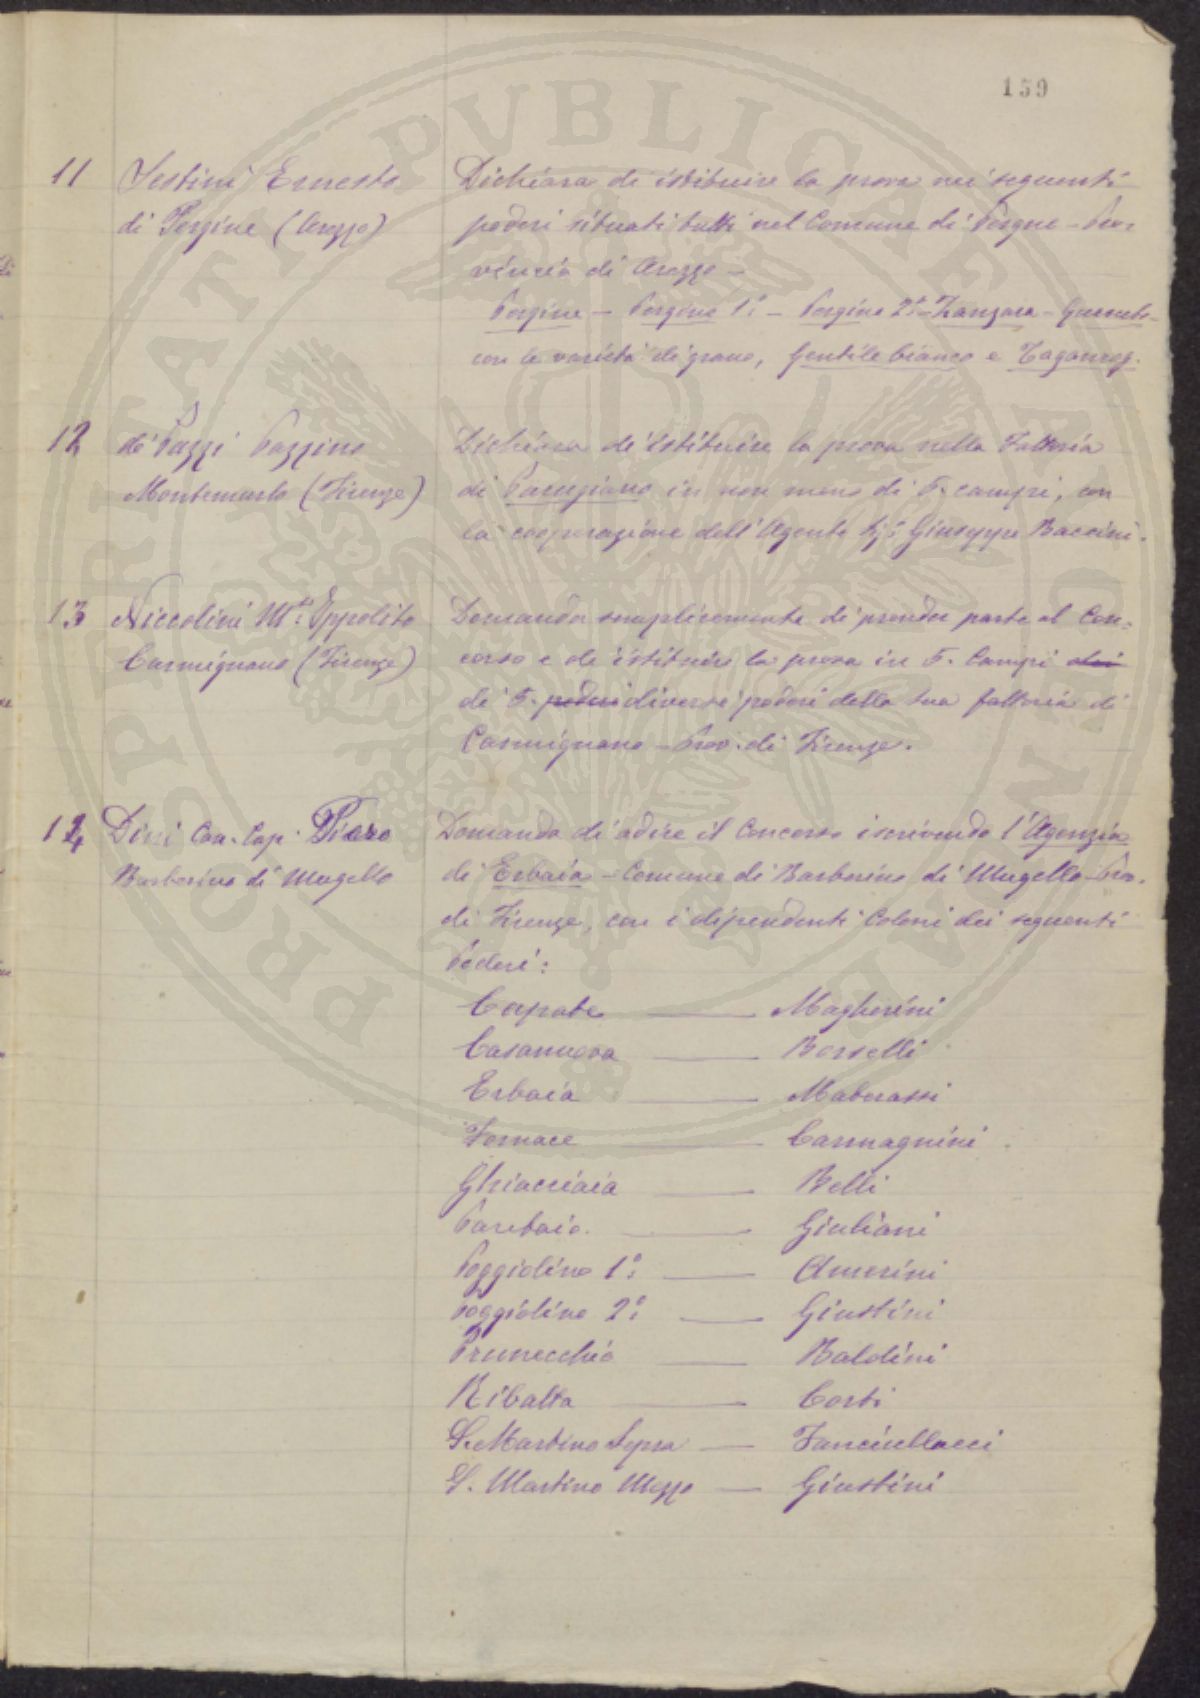 159
11 Sestini Ernesto
di Pergine (Arezzo)
Dichiara di istituire la prova nei seguenti
poderi situati tutti nel Comune di Pergine - Pro=
vincia di Arezzo -
Pergine - Pergine 1° - Pergine 2° - Zanzara -
con le varietà di grano, Gentile bianco e Taganrog.
12 de' Pazzi Pazzino
Montemurlo (Firenze)
Dichiara di istituire la prova nella Fattoria
di Parugiano in non meno di 5. campi, con
la cooperazione dell'Agente Sig: Giuseppe Baccini.
13 Niccolini M.se Ippolito
Carmignano (Firenze)
Domanda semplicemente di prender parte al Con=
corso e di istituire la prova in 5. Campi
di 5. poderi diversi poderi della sua fattoria di
Carmignano - Prov. di Firenze.
14 Dini Cav. Cap. Piero
Barberino di Mugello
Domanda di adire il Concorso iscrivendo l'Agenzia
di Erbaia - Comune di Barberino di Mugello - Prov.
di Firenze, con i dipendenti Coloni dei seguenti
Poderi:
Capate — Magherini
Casanuova — Borselli
Erbaia — Materassi
Fornace — Carmagnini
Ghiacciaia — Belli
Paretaio. — Giuliani
Poggiolino 1° — Amerini
Poggiolino 2° — Giustini
Prunecchio — Baldini
Ribalta — Corti
S. Martino Sopra — Fanciullacci
S. Martino Mezzo — Giustini